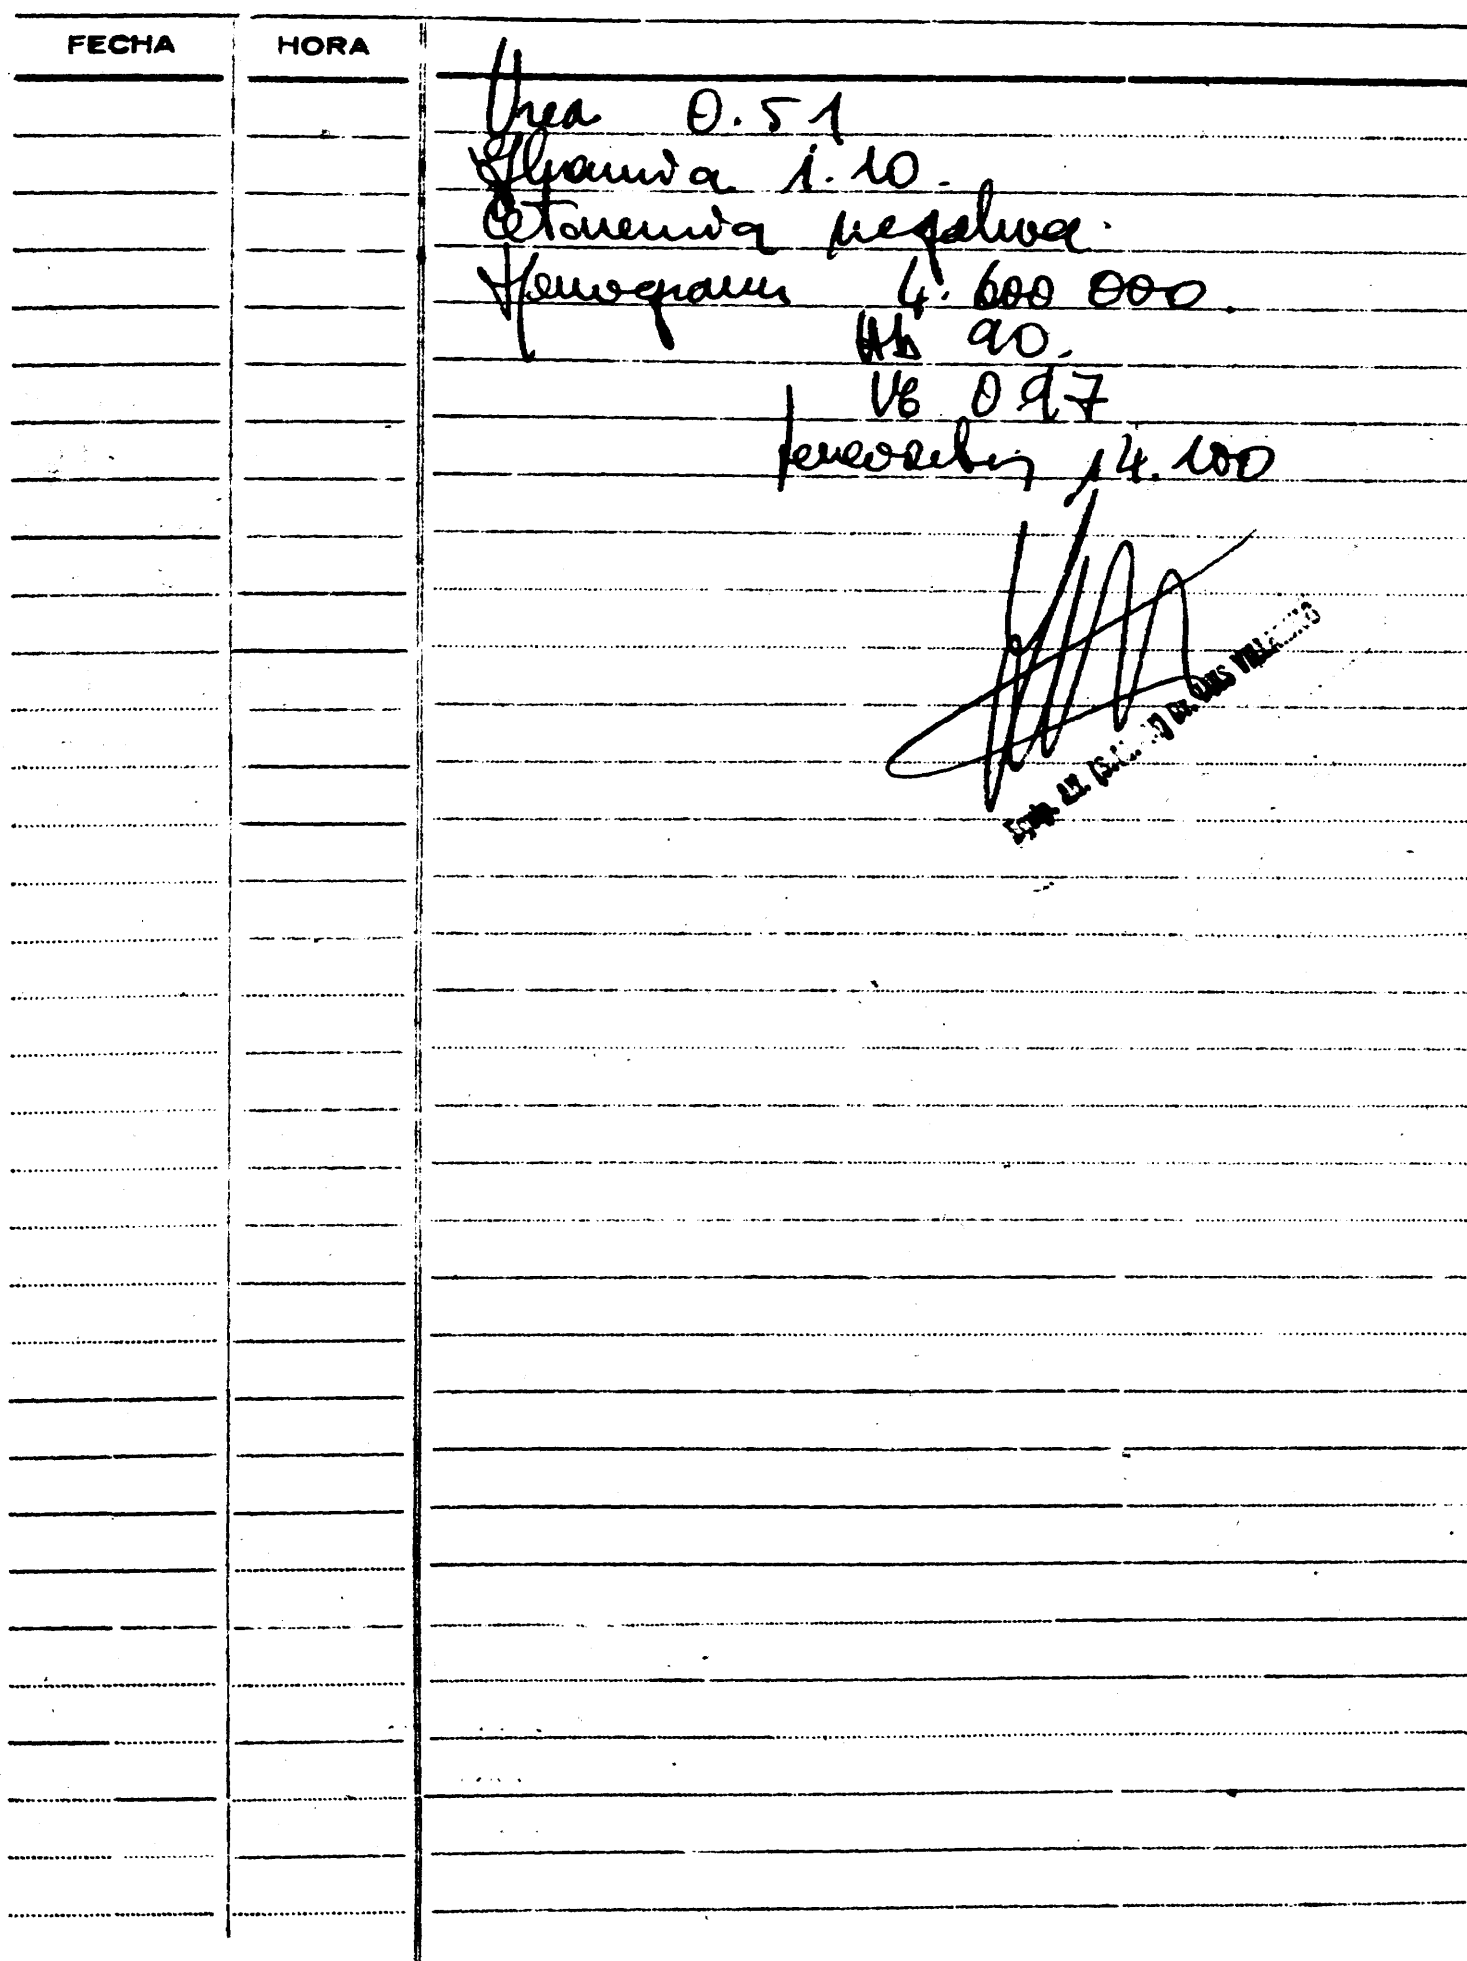 FECHA HORA
Urea 0.51
Glicemia 1.10.
Cetonemia negativa.
Hemograma 4.600 000.
Hb 90.
VG 0.97
leucocitos 14.100
Equip. Alf. Dr.